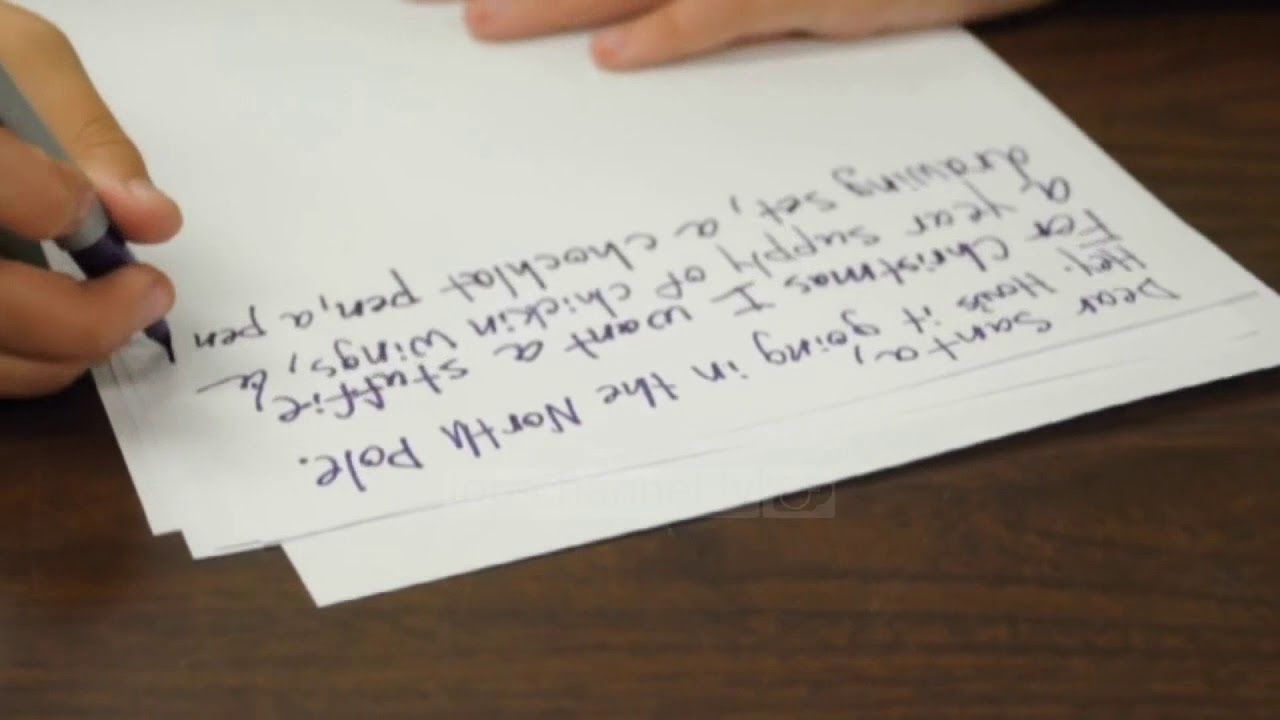 Dear Santa,
Hey. How's it going in the North Pole.
For Christmas I want a stuffie,
a year supply of chickin wings, a
drawing set, a chochlat pen, a pen
top-channel.tv